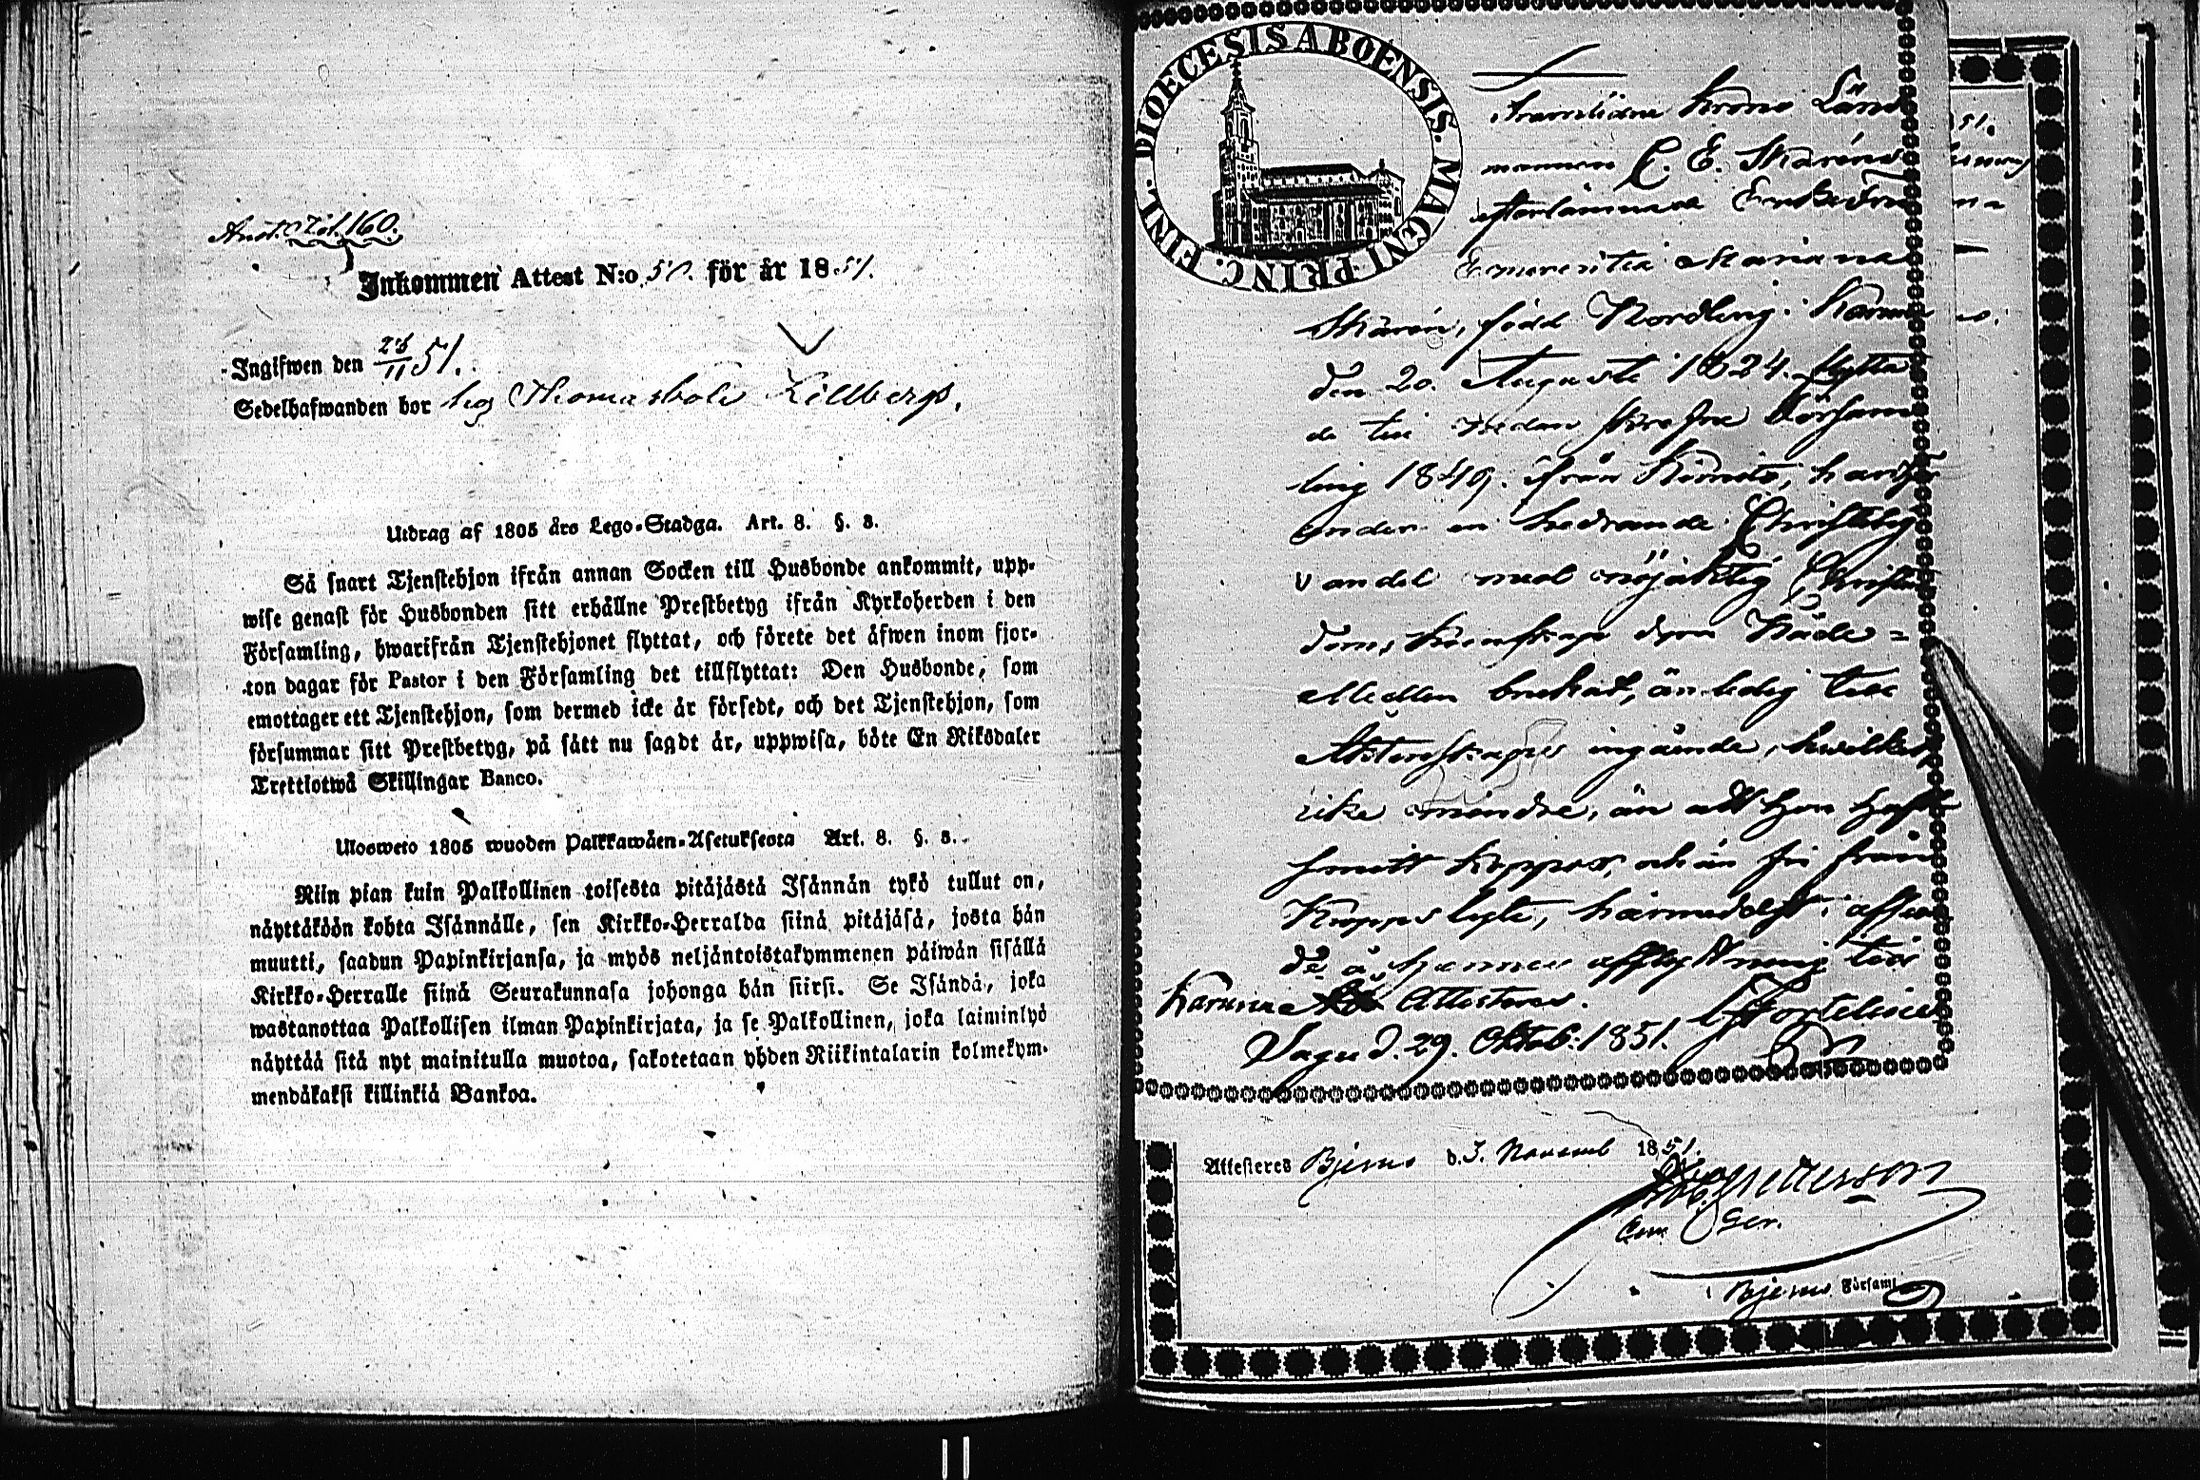 Anot. Fol. 160.
Inkommen Attest N:o 50. för år 1851.
Ingifwen den 28/11 51.
Sedelhafwanden bor hos Thomasböle Lillbergs.
Utdrag af 1805 års Lego-Stadga. Art. 8. §. 8.
Så snart Tjenstehjon ifrån annan Socken till Husbonde ankommit, upp-
wise genast för Husbonden sitt erhållne Prestbetyg ifrån Kyrkoherden i den
Församling, hwarifrån Tjenstehjonet flyttat, och förete det äfwen inom fjor-
ton dagar för Pastor i den Församling det tillflyttat: Den Husbonde, som
emottager ett Tjenstehjon, som dermed icke är försedt, och det Tjenstehjon, som
försummar sitt Prestbetyg, på sätt nu sagdt är, uppwisa, böte En Riksdaler
Trettiotwå Skillingar Banco.
Ulosweto 1805 wuoden Palkkawäen-Asetuksesta Art. 8. §. 8.
Niin pian kuin Palkollinen toisesta pitäjästä Isännän tykö tullut on,
näyttäköön kohta Isännälle, sen Kirkko-Herralda siinä pitäjäsä, josta hän
muutti, saadun Papinkirjansa, ja myös neljäntoistakymmenen päiwän sisällä
Kirkko-Herralle siinä Seurakunnasa johonga hän siirsi. Se Isändä, joka
wastanottaa Palkollisen ilman Papinkirjata, ja se Palkollinen, joka laiminlyö
näyttää sitä nyt mainitulla muotoa, sakotetaan yhden Riikintalarin kolmekym-
mendäkaksi killinkiä Bankoa.
DIOECESIS ABOËNSIS. MAGNI PRINC. FINL.
Framlidne Krono Läns
mannen C. E. Skaréns
efterlämnade Enkedn
Emerentia Mariana
Skarén, född Nordling i Karuna
den 20. Augusti 1824. flytta
de till nedan skrefne Försam
ling 1849. från Kimito, har
under en hedrande Christelig
vandel med nöjaktig Christen
doms kunskap dem Nåde-
medlen brukat, är ledig till
Äktenskaps ingående, hwilket
icke mindre, än att hon haft
smitt koppor, och är fri från
härmedelst, aflem
afflyttning till
Karuna Attesteras.
Sagu d. 29. Oktob. 1851.
Attesteres Bjerno d. 3. Novemb 1851.
Bjerno Församl